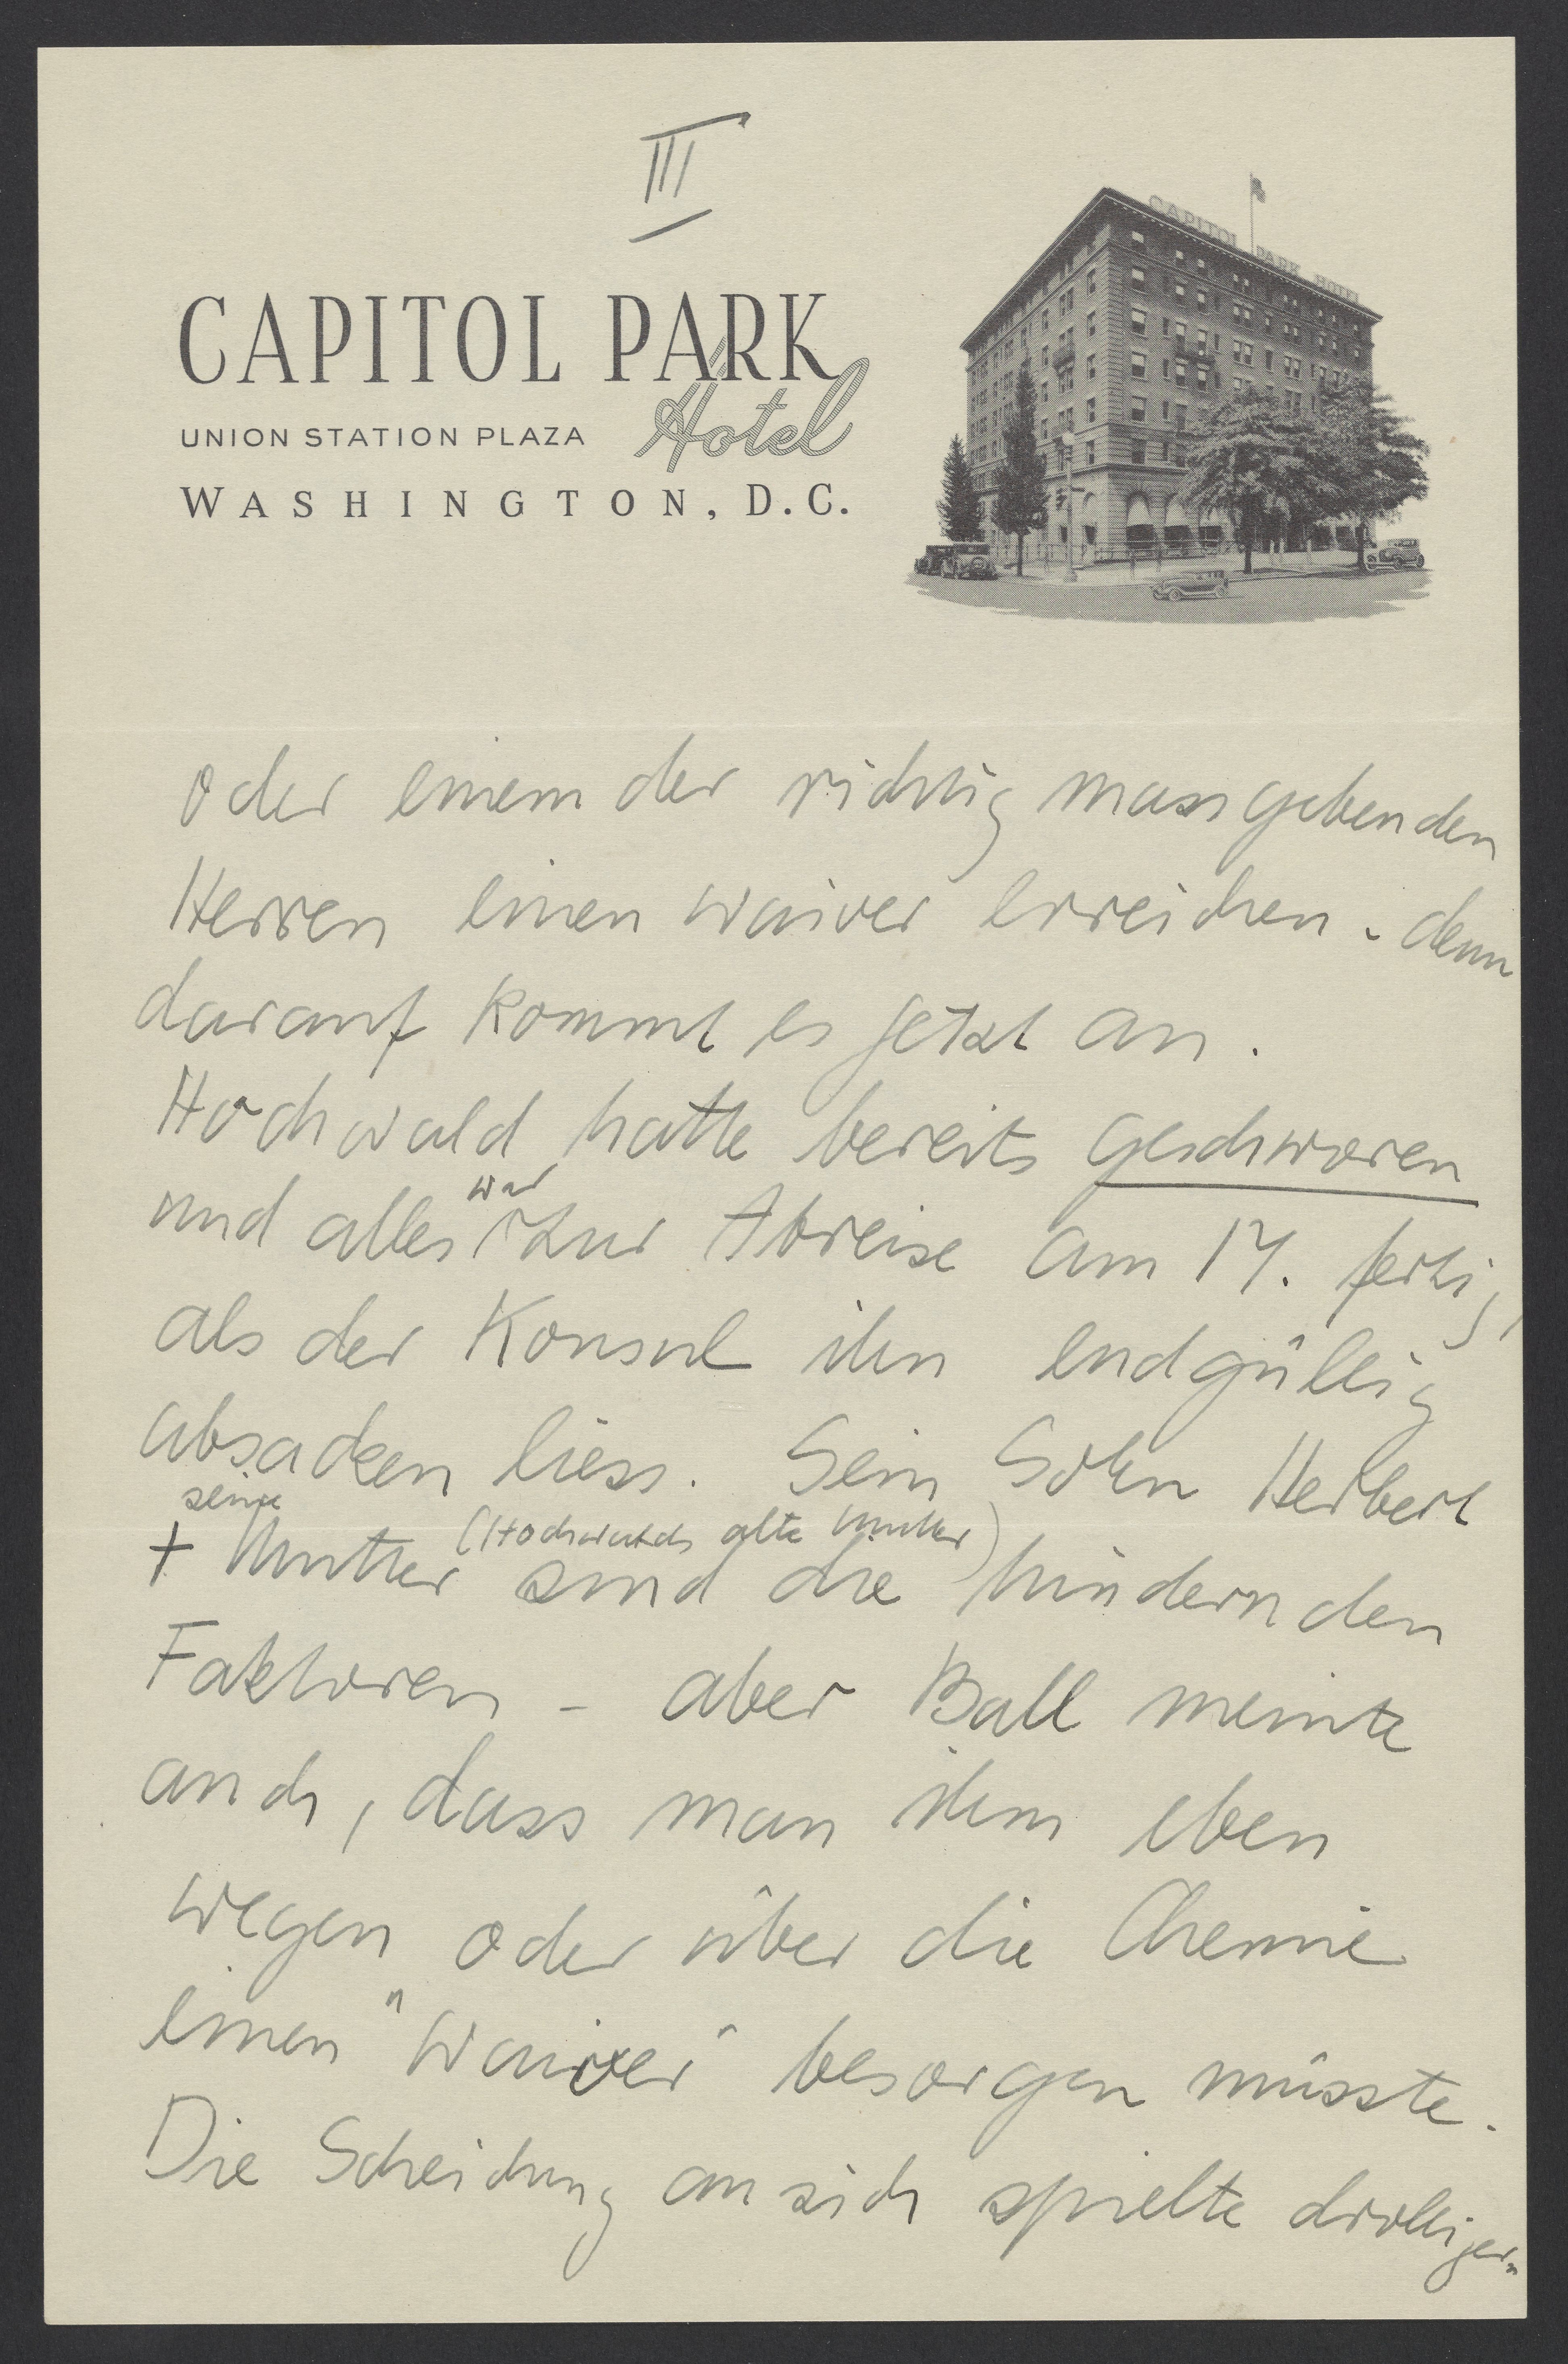 III
CAPITOL PARK
Hotel
UNION STATION PLAZA
WASHINGTON, D.C.
CAPITOL PARK HOTEL
oder einem der richtig massgebenden
Herren einen waiver erreichen - denn
darauf kommt es jetzt an.
Hochwald hatte bereits geschworen
war
und alles zur Abreise am 14. fertig,
als der Konsul ihn endgültig
absacken liess. Sein Sohn Herbert
seine (Hochwalds alte Mutter)
+ Mutter sind die hindernden
Faktoren - aber Ball meinte
auch, dass man ihm eben
wegen oder über die Chemie
einen "Waiver" besorgen müsste.
Die Scheidung an sich spielte drolliger-